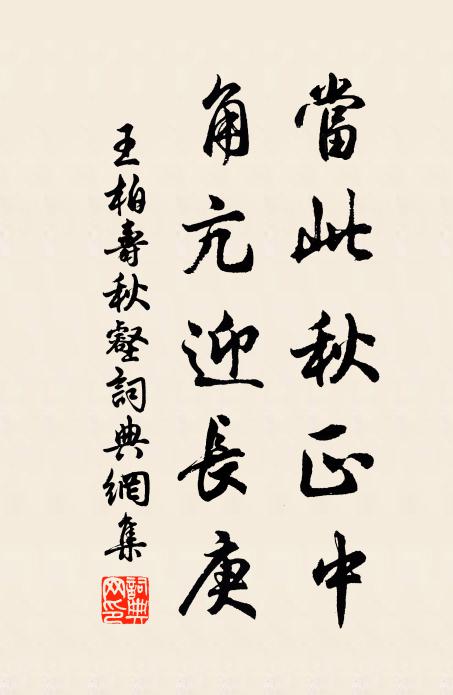 當此秋正中
角亢迎長庚
王柏壽秋壑詞典網集
詞典网印